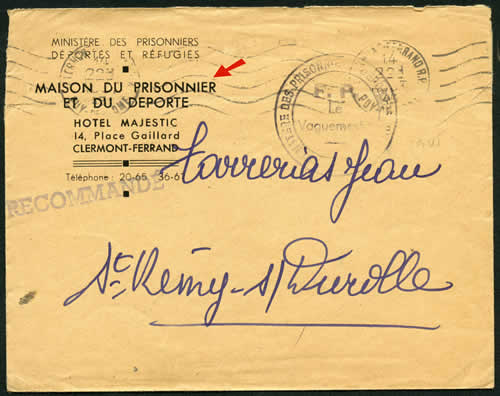 MINISTÈRE DES PRISONNIERS
DÉPORTÉS ET RÉFUGIÉS
MAISON DU PRISONNIER
ET DU DEPORTE
HOTEL MAJESTIC
14, Place Gaillard
CLERMONT-FERRAND
Téléphone : 20-65 36-67
RECOMMANDÉ
DES PRISONNIER
F. P.
Le
Vaguemest
Jean
St. Rémy-s/Durolle